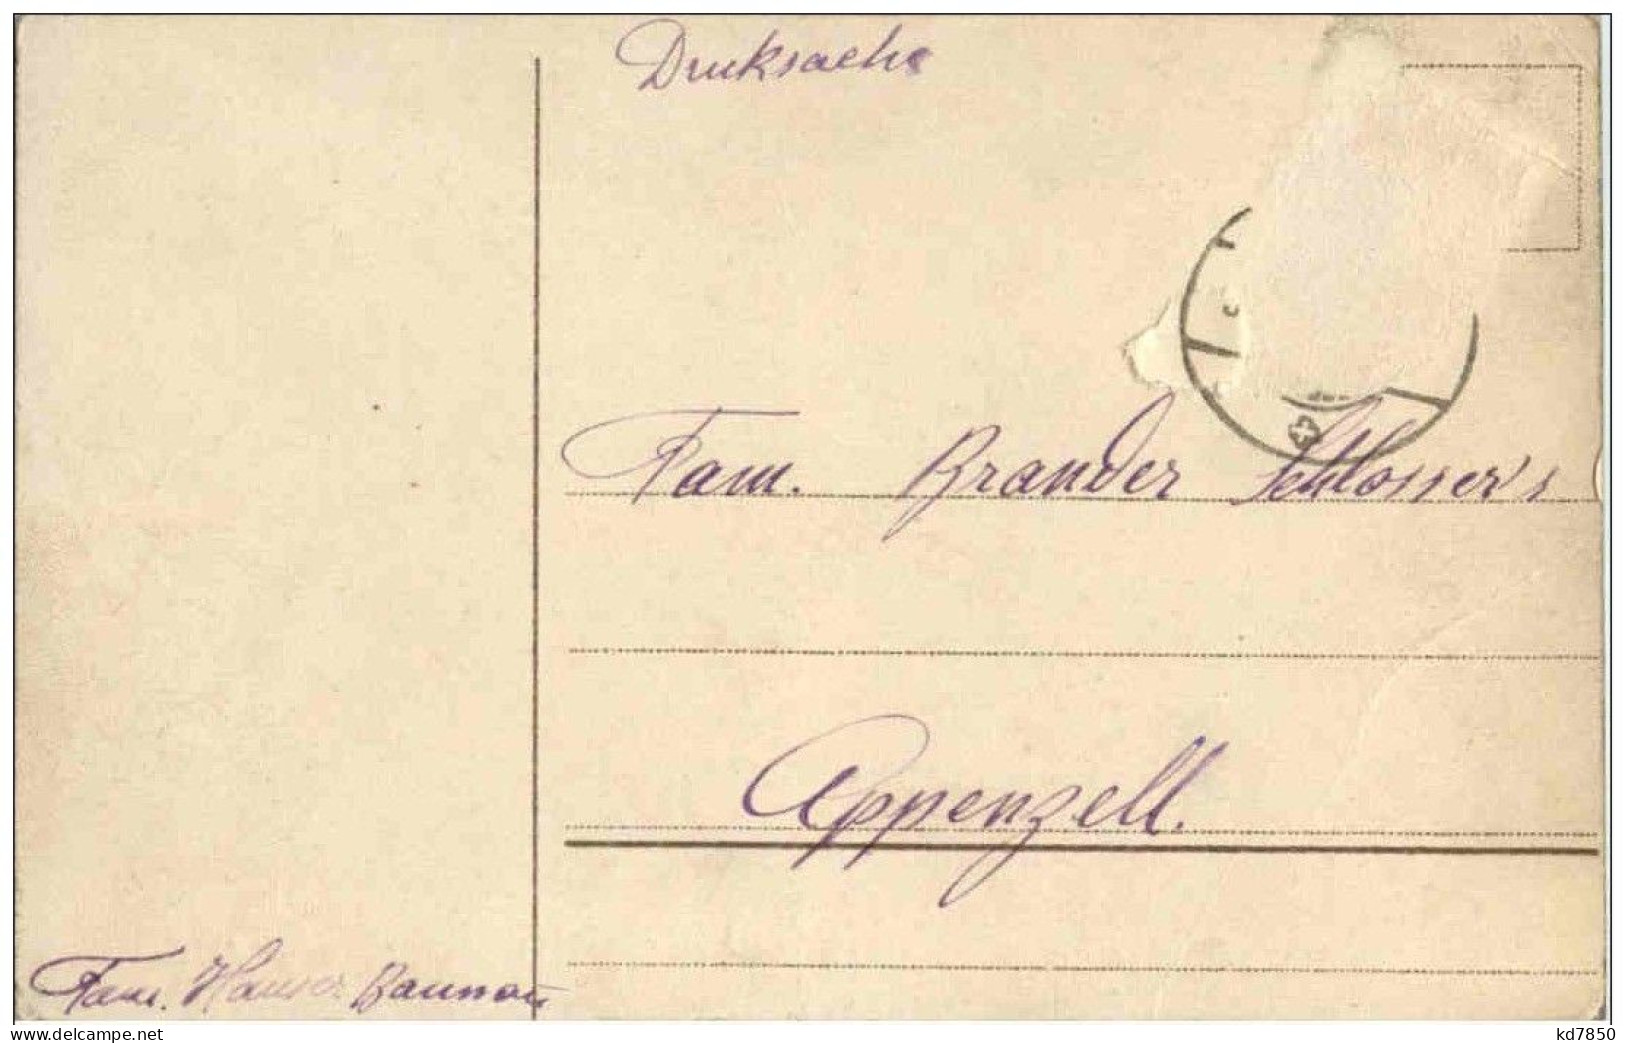 Drucksache
Fam. Brander Schlosser's
Appenzell.
Fam. Hauser
delcampe.net
kd7850